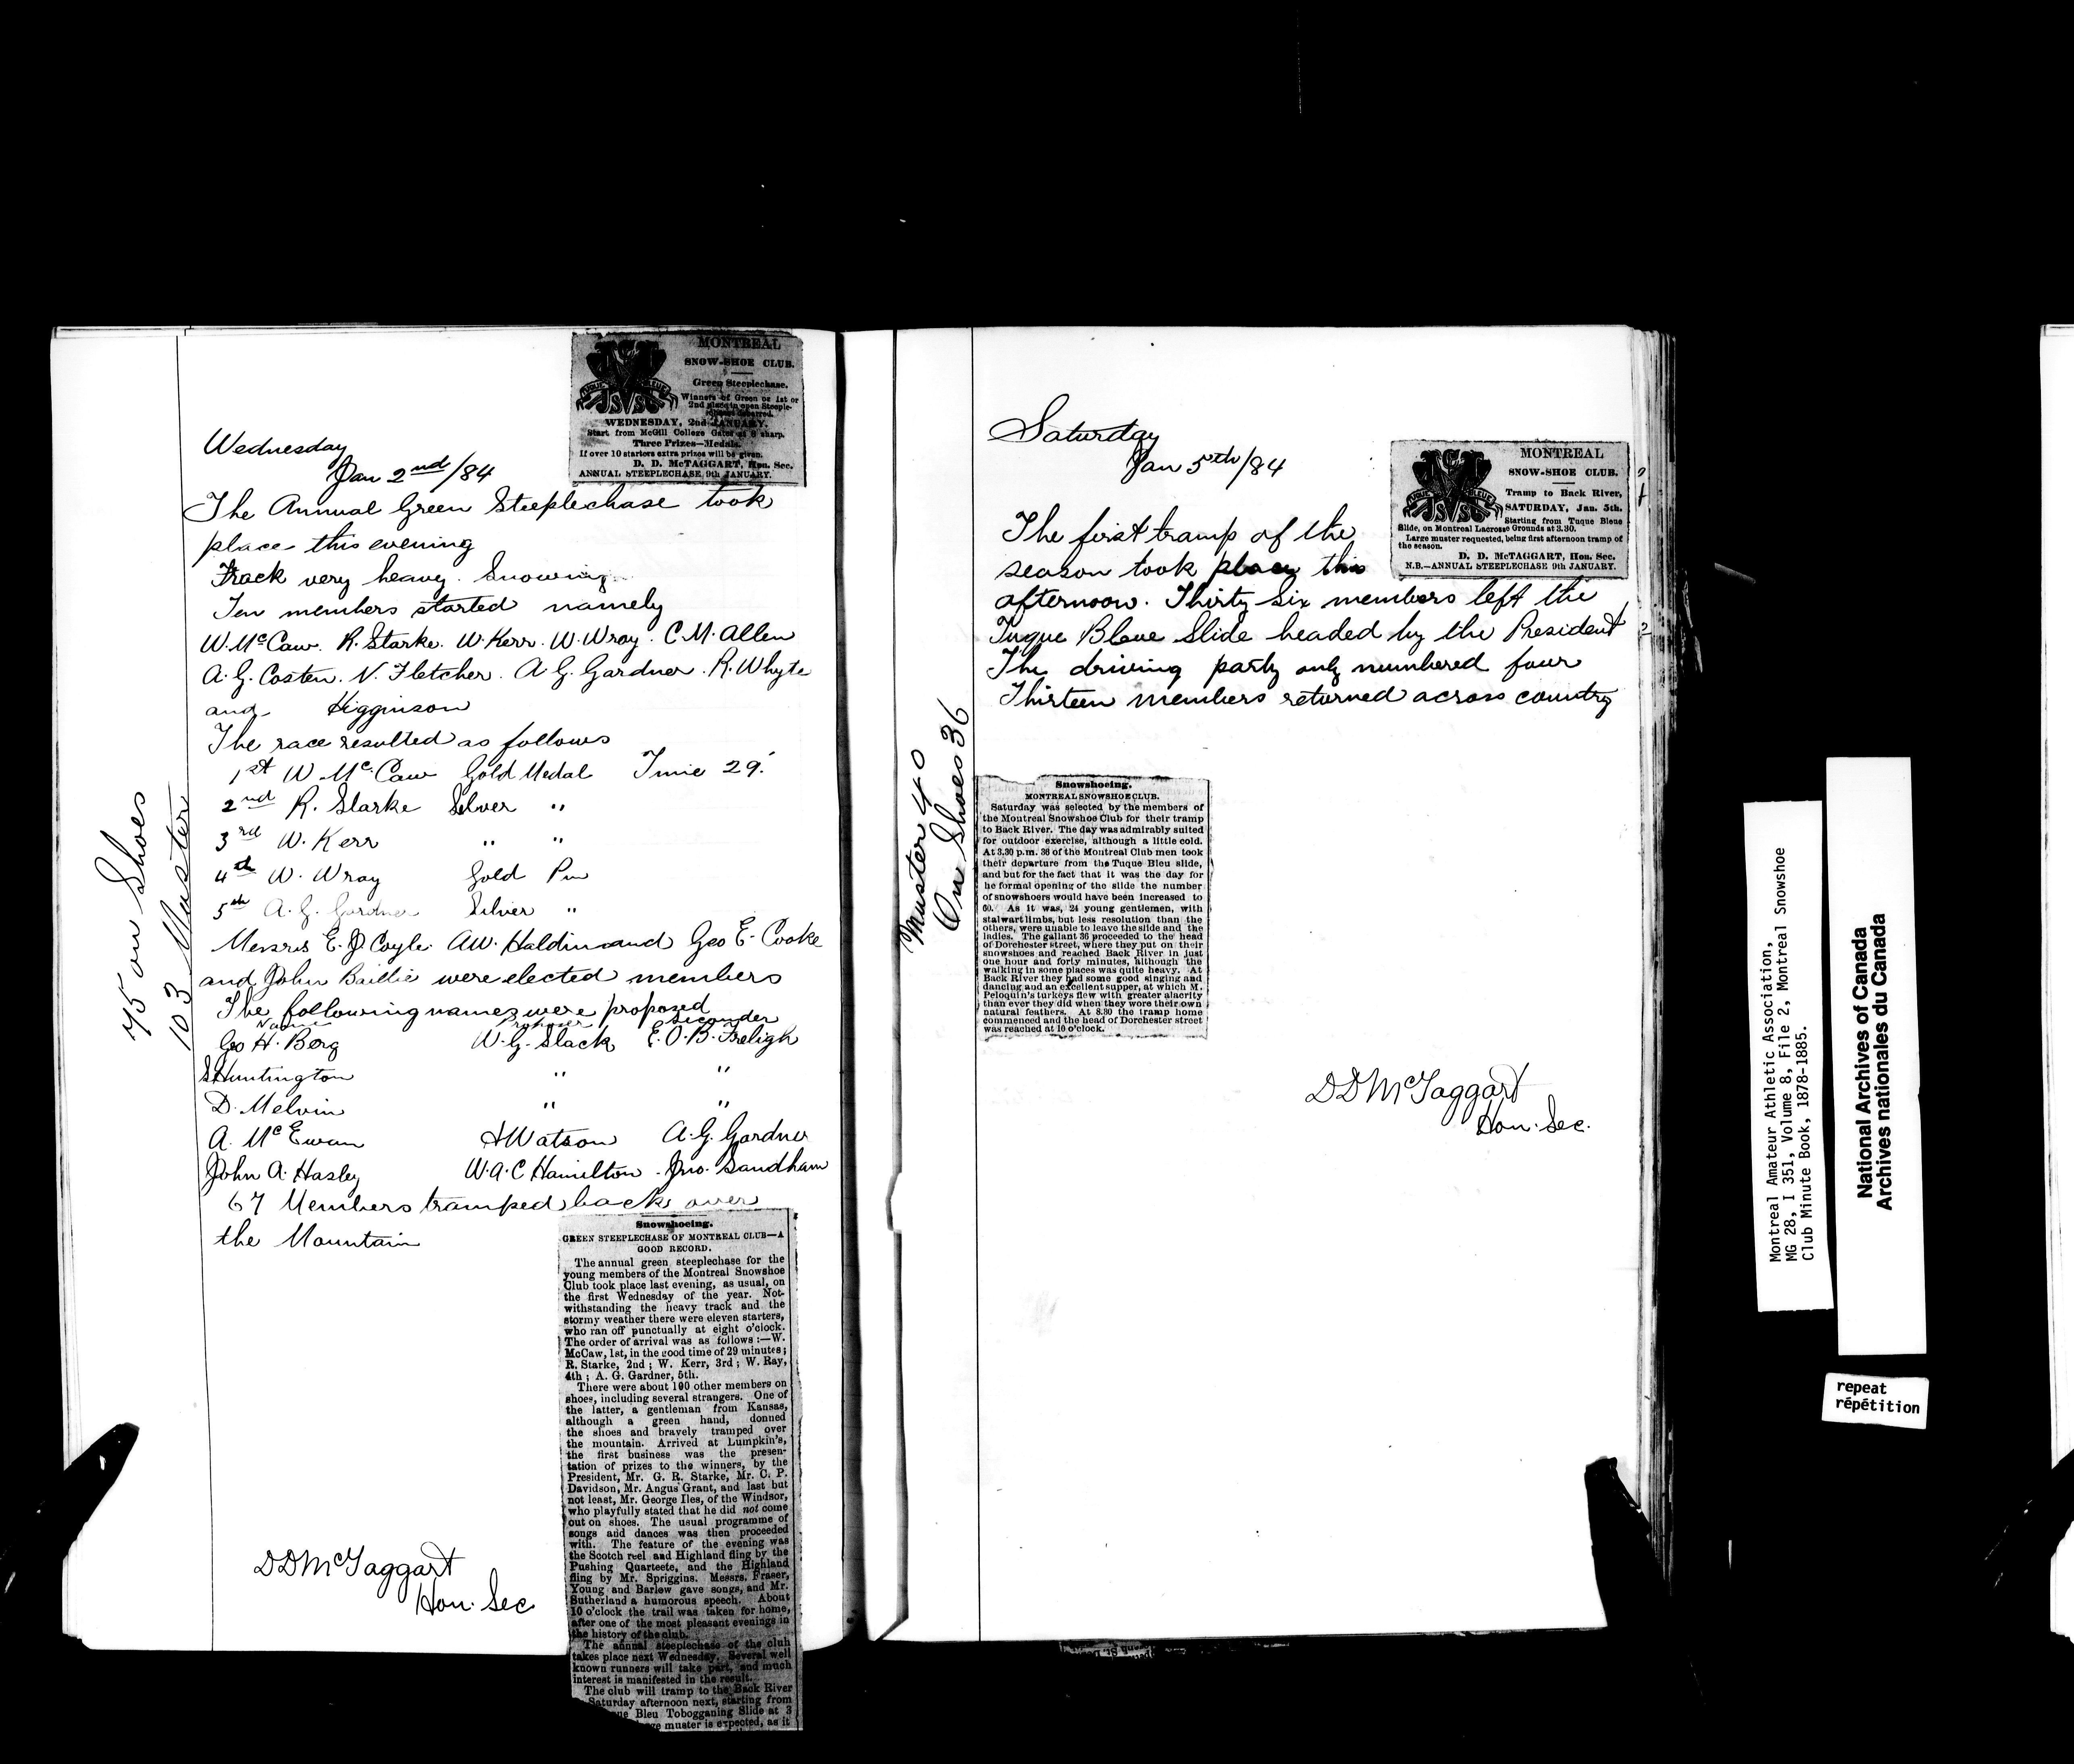 MONTREAL
SNOW-SHOE CLUB.
Green Steeplechase.
Winners of Green or 1st or
2nd place in open Steeple-
WEDNESDAY, 2nd JANUARY.
Start from McGill College Gates at 8 sharp.
Three Prizes—Medals.
If over 10 starters extra prizes will be given.
D. D. McTAGGART, Hon. Sec.
ANNUAL STEEPLECHASE 9th JANUARY.
TUQUE BLEUE
Wednesday
Jan 2nd/84
The Annual Green Steeplechase took
place this evening
Track very heavy. Snowing.
Ten members started namely
W. McCaw. R. Starke. W. Kerr. W. Wray. C. M. Allen
A. G. Costen. N. Fletcher. A G. Gardner. R. Whyte
and Higginson
The race resulted as follows
1st W McCaw Gold Medal Time 29.'
2nd R. Starke Silver "
3rd W. Kerr " "
4th W. Wray Gold Pin
5th A. G. Gardner Silver "
Messrs E. J Coyle AW. Haldimand Geo E. Cooke
and John Baillie were elected members
The following names were proposed
Name Proposer Seconder
Geo H. Berg W. G. Slack E. O. B. Freligh
S Huntington " "
D. Melvin " "
A. McEwan H Watson A. G. Gardner
John A. Hasley W. A. C Hamilton. Jno. Sandham
67 Members tramped back over
the Mountain
75 on Shoes
103 Muster
Snowshoeing.
GREEN STEEPLECHASE OF MONTREAL CLUB—A
GOOD RECORD.
The annual green steeplechase for the
young members of the Montreal Snowshoe
Club took place last evening, as usual, on
the first Wednesday of the year. Not-
withstanding the heavy track and the
stormy weather there were eleven starters,
who ran off punctually at eight o'clock.
The order of arrival was as follows :—W.
McCaw, 1st, in the good time of 29 minutes;
R. Starke, 2nd ; W. Kerr, 3rd ; W. Ray,
4th ; A. G. Gardner, 5th.
There were about 100 other members on
shoes, including several strangers. One of
the latter, a gentleman from Kansas,
although a green hand, donned
the shoes and bravely tramped over
the mountain. Arrived at Lumpkin's,
the first business was the presen-
tation of prizes to the winners, by the
President, Mr. G. R. Starke, Mr. C. P.
Davidson, Mr. Angus Grant, and last but
not least, Mr. George Iles, of the Windsor,
who playfully stated that he did not come
out on shoes. The usual programme of
songs and dances was then proceeded
with. The feature of the evening was
the Scotch reel and Highland fling by the
Pushing Quarteete, and the Highland
fling by Mr. Spriggins. Messrs. Fraser,
Young and Barlow gave songs, and Mr.
Sutherland a humorous speech. About
10 o'clock the trail was taken for home,
after one of the most pleasant evenings in
the history of the club.
The annual steeplechase of the club
takes place next Wednesday. Several well
known runners will take part, and much
interest is manifested in the result.
The club will tramp to the Back River
Saturday afternoon next, starting from
ue Bleu Tobogganing Slide at 3
ge muster is expected, as it
DDMcTaggart
Hon. Sec
Saturday
Jan 5th/84
MONTREAL
SNOW-SHOE CLUB.
Tramp to Back River,
SATURDAY, Jan. 5th.
Starting from Tuque Bleue
Slide, on Montreal Lacrosse Grounds at 3.30.
Large muster requested, being first afternoon tramp of
the season.
D. D. McTAGGART, Hon. Sec.
N.B.—ANNUAL STEEPLECHASE 9th JANUARY.
TUQUE BLEUE
The first tramp of the
season took place this
afternoon. Thirty Six members left the
Tuque Bleue Slide headed by the President
The driving party only numbered four
Thirteen members returned across country
Muster 40
On Shoes 36
Snowshoeing.
MONTREAL SNOWSHOE CLUB.
Saturday was selected by the members of
the Montreal Snowshoe Club for their tramp
to Back River. The day was admirably suited
for outdoor exercise, although a little cold.
At 3.30 p.m. 36 of the Montreal Club men took
their departure from the Tuque Bleu slide,
and but for the fact that it was the day for
he formal opening of the slide the number
of snowshoers would have been increased to
60. As it was, 24 young gentlemen, with
stalwart limbs, but less resolution than the
others, were unable to leave the slide and the
ladies. The gallant 36 proceeded to the head
of Dorchester street, where they put on their
snowshoes and reached Back River in just
one hour and forty minutes, although the
walking in some places was quite heavy. At
Back River they had some good singing and
dancing and an excellent supper, at which M.
Peloquin's turkeys flew with greater alacrity
than ever they did when they wore their own
natural feathers. At 8.30 the tramp home
commenced and the head of Dorchester street
was reached at 10 o'clock.
DDMcTaggart
Hon. Sec.
Montreal Amateur Athletic Association,
MG 28, I 351, Volume 8, File 2, Montreal Snowshoe
Club Minute Book, 1878-1885.
National Archives of Canada
Archives nationales du Canada
repeat
répétition